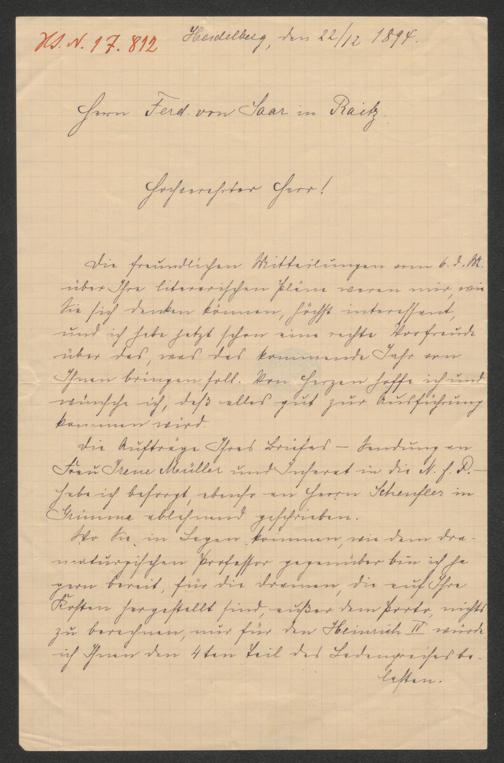 HS. N. 97.892
Heidelberg, den 22/12 1894.
Herrn Ferd. von Saar in Raitz.
Hochverehrter Herr!
Die freundlichen Mitteilungen vom 6. d. M.
über Ihre literarischen Pläne waren mir, wie
Sie sich denken können, höchst interessant,
und ich habe jetzt schon eine rechte Vorfreude
über das, was das kommende Jahr von
Ihnen bringen soll. Von Herzen hoffe ich und
wünsche ich, daß alles gut zur Ausführung
kommen wird.
Die Aufträge Ihres Briefes – Sendung an
Frau Irene Müller und Inserat in die N. f. P. –
habe ich besorgt, ebenso an Herrn Scheufler in
Grimma ablehnend geschrieben.
Wo Sie in kommen, wie dem dra-
maturgischen Professor gegenüber bin ich ja
gern bereit, für die Dramen, die auf Ihre
Kosten hergestellt sind, außer dem Porto, nichts
zu berechnen, nur für den Heinrich IV würde
ich Ihnen den 4ten Teil des Ladenpreises be-
lasten.